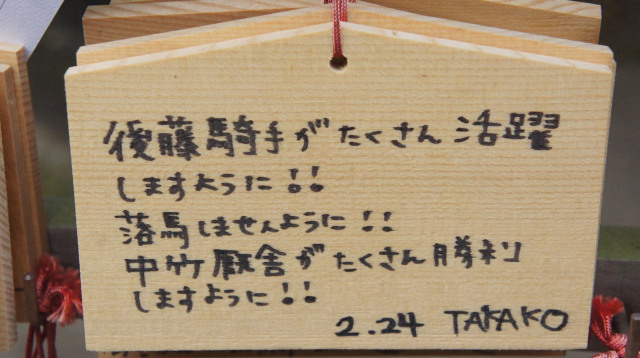 後藤騎手がたくさん活躍
しますように!!
落馬しませんように!!
中竹厩舎がたくさん勝利
しますように!!
2.24 TAKAKO